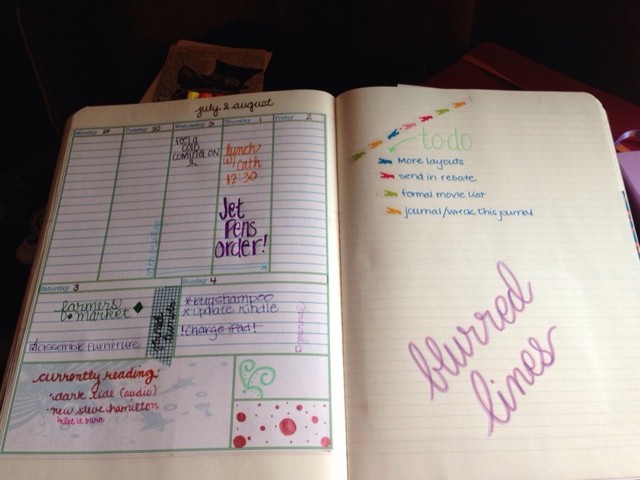 july & august
Monday 29
Tuesday 30
Wednesday 31
Thursday 1
Friday 2
feel a
cold
coming on
lunch
w/ cath
12:30
Jet
Pens
order!
Saturday 3
Sunday 4
farmers
market
assemble furniture
x buy shampoo
x update kindle
!Charge iPad!
currently reading:
dark tide (audio)
new steve hamilton
let it burn
to do
More layouts
send in rebate
formal movie list
journal/wreck this journal
blurred
lines